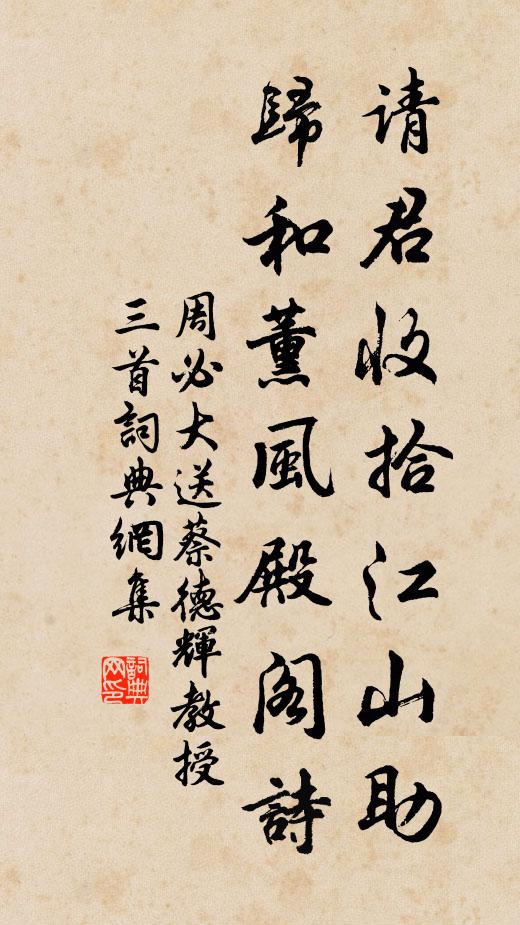 请君收拾江山助
歸和薰風殿阁詩
周必大送蔡德輝教授
三首詞典網集
詞典
网印